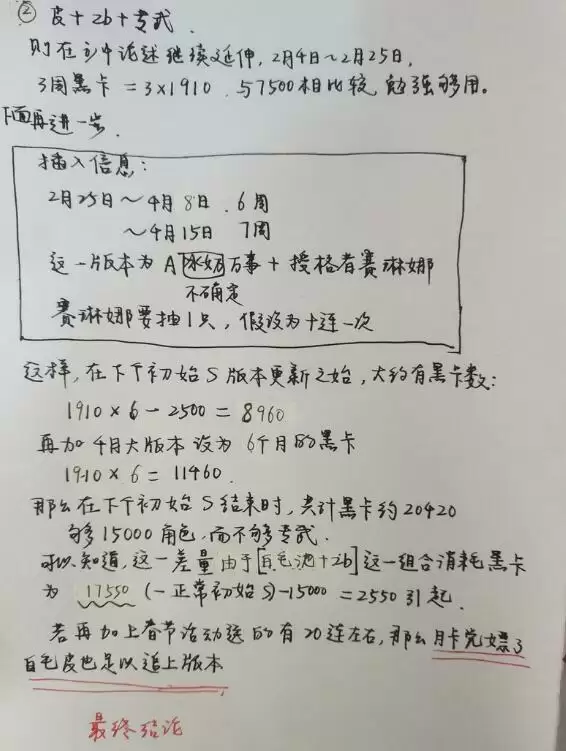 ② 皮+2b+专武.
则在①中论述继续延伸, 2月4日~2月25日,
3周黑卡 = 3×1910. 与7500相比较, 勉强够用。
下面再进一步.
插入信息:
2月25日~4月8日. 6周
~4月15日 7周
这一版本为A冰奶万事+授格者赛琳娜
不确定
赛琳娜要抽1只, 假设为十连一次
这样, 在下个初始S版本更新之始, 大约有黑卡数:
1910×6-2500=8960
再加4月大版本设为6个月的黑卡
1910×6=11460.
那么在下个初始S结束时, 共计黑卡约20420
够15000角色, 而不够专武.
可以知道, 这一差量由于[白毛池+2b]这一组合消耗黑卡
为 17550 (一正常初始S)-15000=2550引起.
若再加上春节活动送的有20连左右, 那么月卡完嫖了
白毛皮也足以追上版本
最终结论